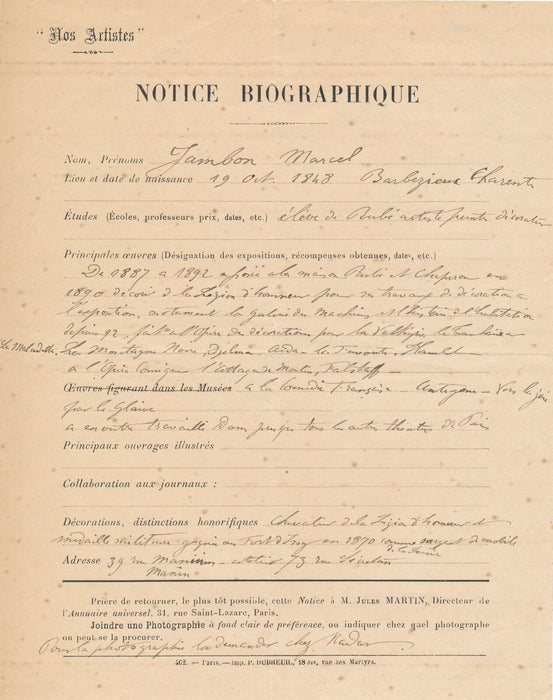 "Nos Artistes"
NOTICE BIOGRAPHIQUE
Nom, Prénoms Jambon Marcel
Lieu et date de naissance 19 Oct. 1848 Barbezieux Charente
Études (Écoles, professeurs prix, dates, etc.) élève de Rubé artiste peintre décorateur
Principales œuvres (Désignation des expositions, récompenses obtenues, dates, etc.)
De 1887 a 1892 associé a la maison Rubé et Chaperon en
1890 décoré de la Légion d'honneur pour ses travaux de décoration a
l'exposition, notamment la galerie des machines et l'histoire de l'habitation
depuis 92 fait a l'Opéra des décorations pour la Valkyrie, le Tannhäuser
La Maladetta, La Montagne Noire, Djelma Aida La Favorite, Hamlet
a l'Opéra Comique l'Escadron Falstaff
Œuvres figurant dans les Musées a la Comédie Française - Antigone - Vers la joie
par le Glaive
a encore travaillé dans presque tous les autres théatres de Paris
Principaux ouvrages illustrés
Collaboration aux journaux :
Décorations, distinctions honorifiques Chevalier de la Légion d'honneur et
médaille militaire gagnée au Fort d'Issy en 1870 comme sergent de mobiles
de la Seine
Adresse 39 rue Manin atelier 73 rue Secrétan
Manin
Prière de retourner, le plus tôt possible, cette Notice à M. JULES MARTIN, Directeur de
l'Annuaire universel, 31, rue Saint-Lazare, Paris.
Joindre une Photographie à fond clair de préférence, ou indiquer chez quel photographe
on peut se la procurer.
Pour la photographie la demander chez Nadar
462. — Paris. — Imp. P. DUBREUIL, 18 bis, rue des Martyrs.